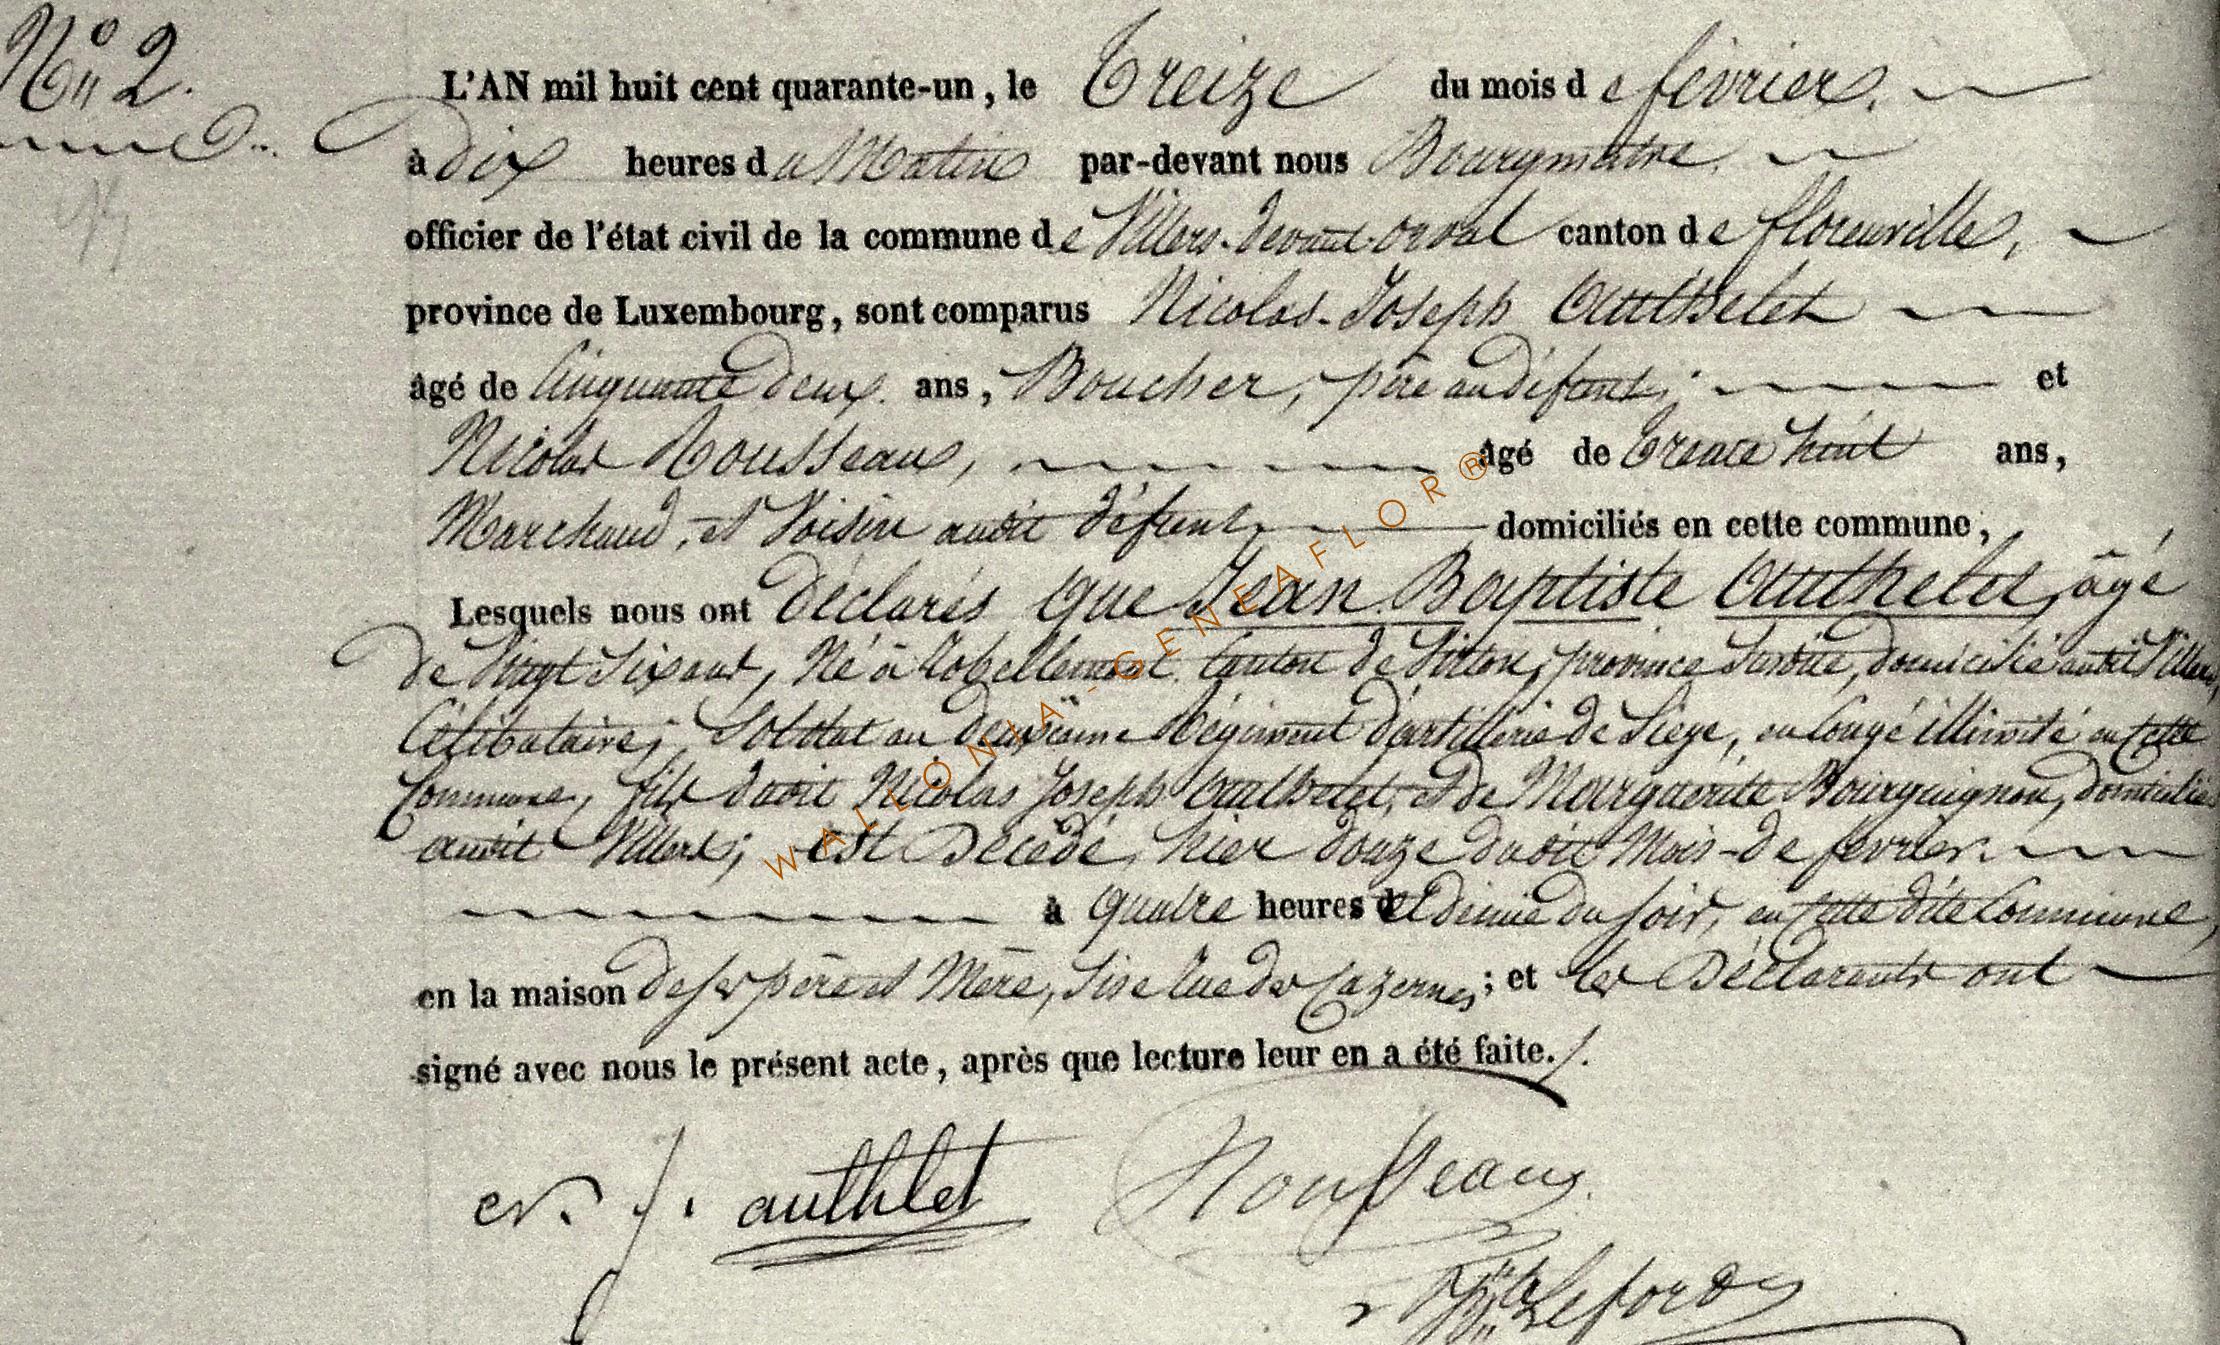 N° 2.
L'AN mil huit cent quarante-un, le Treize du mois de février.
à dix heures du Matin par-devant nous Bourgmaitre
officier de l'état civil de la commune de Villers-devant-orval canton de florenville,
province de Luxembourg, sont comparus Nicolas-Joseph Authelet
âgé de Cinquante deux ans, Boucher, père au défunt; et
Nicolas Rousseaux, âgé de trente huit ans,
Marchand, et Voisin audit défunt, domiciliés en cette commune,
Lesquels nous ont déclarés que Jean Baptiste Authelet, âgé
de Vingt Six ans, Né à Robellemont Canton de Virton, province susdite, domicilié audit Villers,
Célibataire; Soldat au deuxième Régiment d'artillerie de Siège, en Congé illimité en cette
Commune, fils dudit Nicolas Joseph Authelet, et de Marguerite Bourguignon, domiciliés
audit Villers; est Décédé, hier douze dudit Mois de février.
à quatre heures et demie du soir, en cette dite Commune,
en la maison de ses père et Mère, Sise Rue des Cazernes; et les Déclarants ont
signé avec nous le présent acte, après que lecture leur en a été faite./.
authlet Rousseaux
Leforay
WALLONIA-GENEAFLOR®